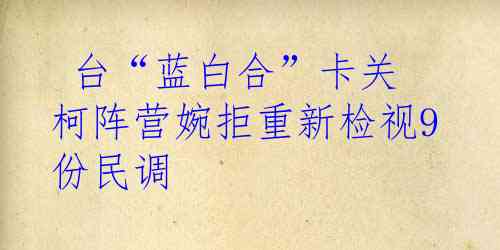 台“蓝白合”卡关
柯阵营婉拒重新检视9
份民调